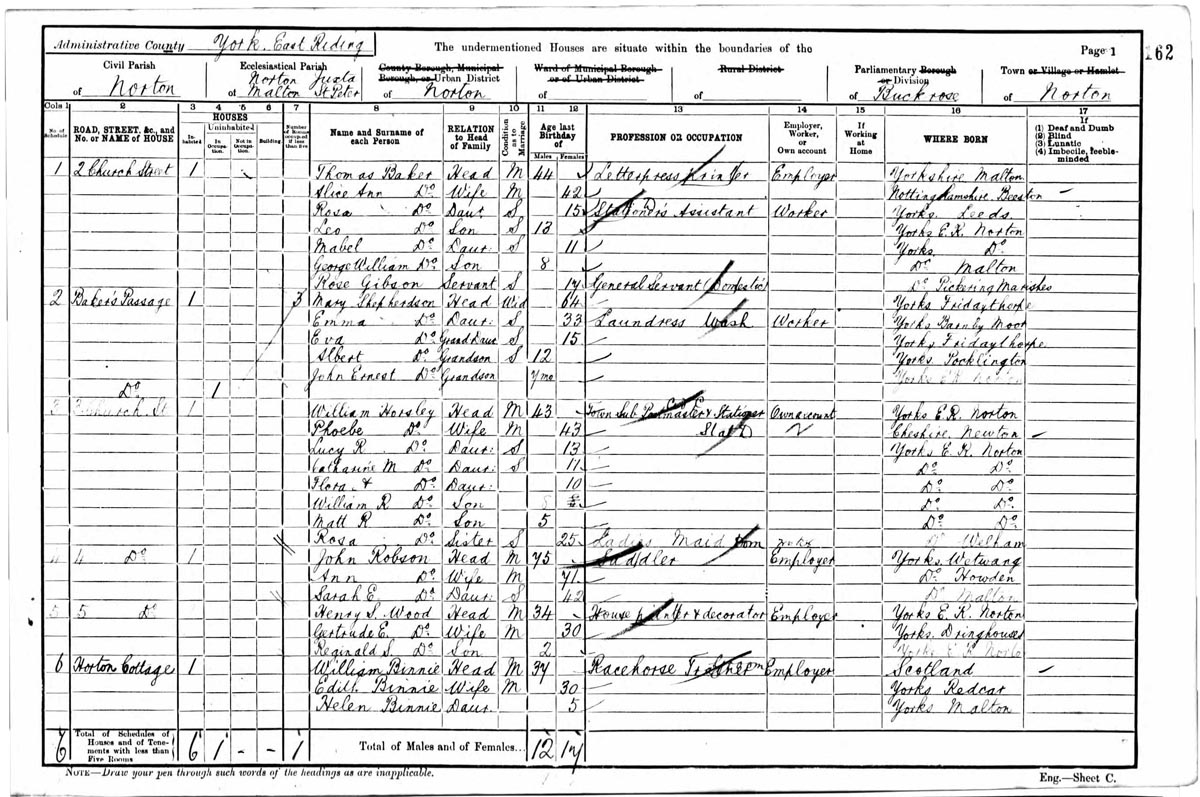 Administrative County York. East Riding The undermentioned Houses are situate within the boundaries of the Page 1
162
Civil Parish Ecclesiastical Parish County Borough, Municipal Ward of Municipal Borough Rural District Parliamentary Borough Town or Village or Hamlet
of Norton of Norton Juxta Malton St Peter Borough, or Urban District of Norton or of Urban District of of or Division of Buckrose of Norton
Cols 1 2 3 4 5 6 7 8 9 10 11 12 13 14 15 16 17
No. of Schedule ROAD, STREET, &c., and No. or NAME of HOUSE HOUSES Inhabited Uninhabited In Occupation Not in Occupation Building Number of Rooms occupied if less than five Name and Surname of each Person RELATION to Head of Family Condition as to Marriage Age last Birthday of Males Females PROFESSION OR OCCUPATION Employer, Worker, or Own account If Working at Home WHERE BORN If (1) Deaf and Dumb (2) Blind (3) Lunatic (4) Imbecile, feeble-minded
1 2 Church Street 1 Thomas Baker Head M 44 Letterpress Printer Employer Yorkshire Malton
Alice Ann Do Wife M 42 Nottinghamshire. Beeston
Rosa Do Daur S 15 Stationer's Assistant Worker Yorks. Leeds
Leo Do Son S 13 Yorks E.R. Norton
Mabel Do Daur: S 11 Yorks. Do
George William Do Son 8 Do Malton
Rose Gibson Servant S 17 General Servant (Domestic) Do Pickering Marshes
2 Baker's Passage 1 3 Mary Shepherdson Head Wid 64 Yorks Fridaythorpe
Emma Do Daur: S 33 Laundress Wash Worker Yorks Barnby Moor
Eva Do Grand Daur S 15 Yorks Fridaythorpe
Albert Do Grandson S 12 Yorks Pocklington
John Ernest Do Grandson 7 mo Yorks E.R. Norton
Do 1
3 3 Church St 1 William Horsley Head M 43 Town Sub Postmaster & Stationer Own account Yorks E.R. Norton
Phoebe Do Wife M 43 Cheshire. Newton
Lucy R. Do Daur: S 13 Yorks E.R. Norton
Catharine M Do Daur: S 11 Do Do
Flora A Do Daur: 10 Do Do
William R Do Son 8 Do Do
Matt R Do Son 5 Do Do
Rosa Do Sister S 25 Ladies Maid Dom Do Welham
4 4 Do 1 John Robson Head M 75 Saddler Employer Yorks. Wetwang
Ann Do Wife M 71 Do Howden
Sarah E. Do Daur: S 42 Do Malton
5 5 Do 1 Henry S. Wood Head M 34 House painter & decorator Employer Yorks E.R. Norton
Gertrude E. Do Wife M 30 Yorks. Dringhouses
Reginald S. Do Son 2 Yorks E R Norton
6 Horton Cottage 1 William Binnie Head M 37 Racehorse Trainer Employer Scotland
Edith Binnie Wife M 30 Yorks Redcar
Helen Binnie Daur. 5 Yorks Malton
6 Total of Schedules of Houses and of Tenements with less than Five Rooms 6 1 - - 1 Total of Males and of Females... 12 17
NOTE—Draw your pen through such words of the headings as are inapplicable. Eng.—Sheet C.